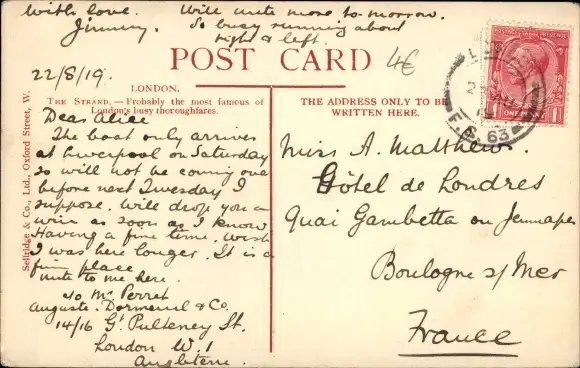 with love. Will write more to-morrow.
Jimmy. So busy running about
right & left
POST CARD
4€
22/8/19.
LONDON.
THE STRAND. — Probably the most famous of
London's busy thoroughfares.
Dear Alice
The boat only arrives
at Liverpool on Saturday
so will not be coming over
before next Tuesday I
suppose. Will drop you a
wire as soon as I know
Having a fine time. Wish
I was here longer. It is a
fine place
write to me here.
c/o Mr Perret
Auguste Dormeuil & Co.
14/16 Gt Pulteney St.
London W. 1
Angleterre.
Selfridge & Co., Ltd., Oxford Street, W.
THE ADDRESS ONLY TO BE
WRITTEN HERE.
Miss A. Matthews.
Hôtel de Londres
Quai Gambetta ou Jemmapes
Boulogne s/Mer
France
ONE PENNY
1
1
F.S. 63